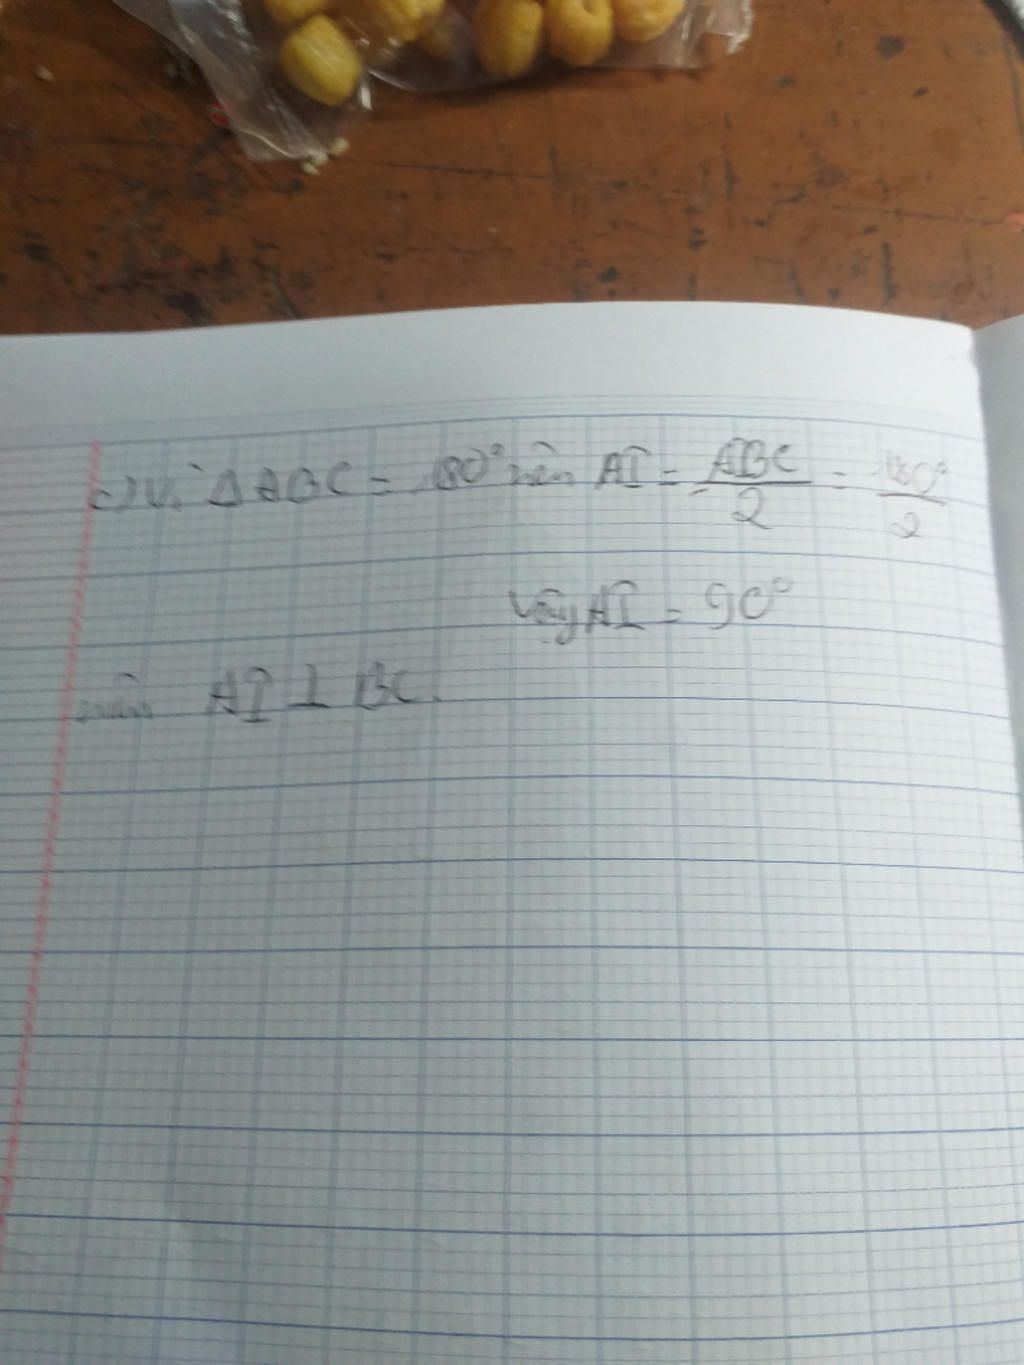 c) Vì ΔABC = 180° nên AI = ABC/2 = 180°/2
Vậy AI = 90°
nên AI ⊥ BC.